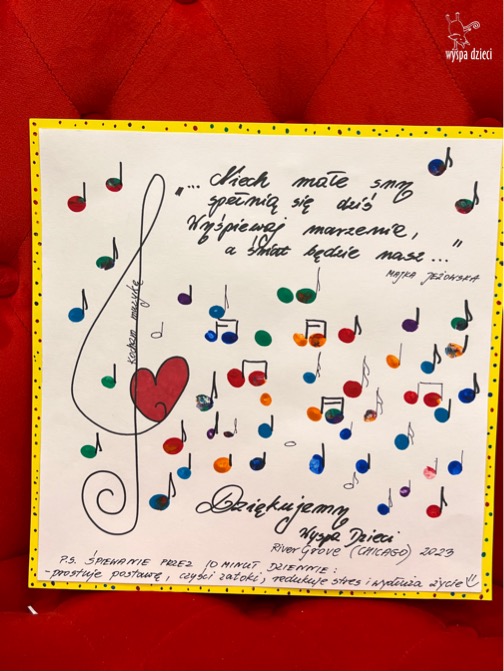 wyspa dzieci
„... Niech małe sny
spełnią się dziś
Wyśpiewaj marzenie,
a świat będzie nasz..."
MAJKA JEŻOWSKA
kocham muzykę
Dziękujemy
Wyspa Dzieci
River Grove (CHICAGO) 2023
P.S. ŚPIEWANIE PRZEZ 10 MINUT DZIENNIE:
- prostuje postawę, czyści zatoki, redukuje stres i wydłuża życie